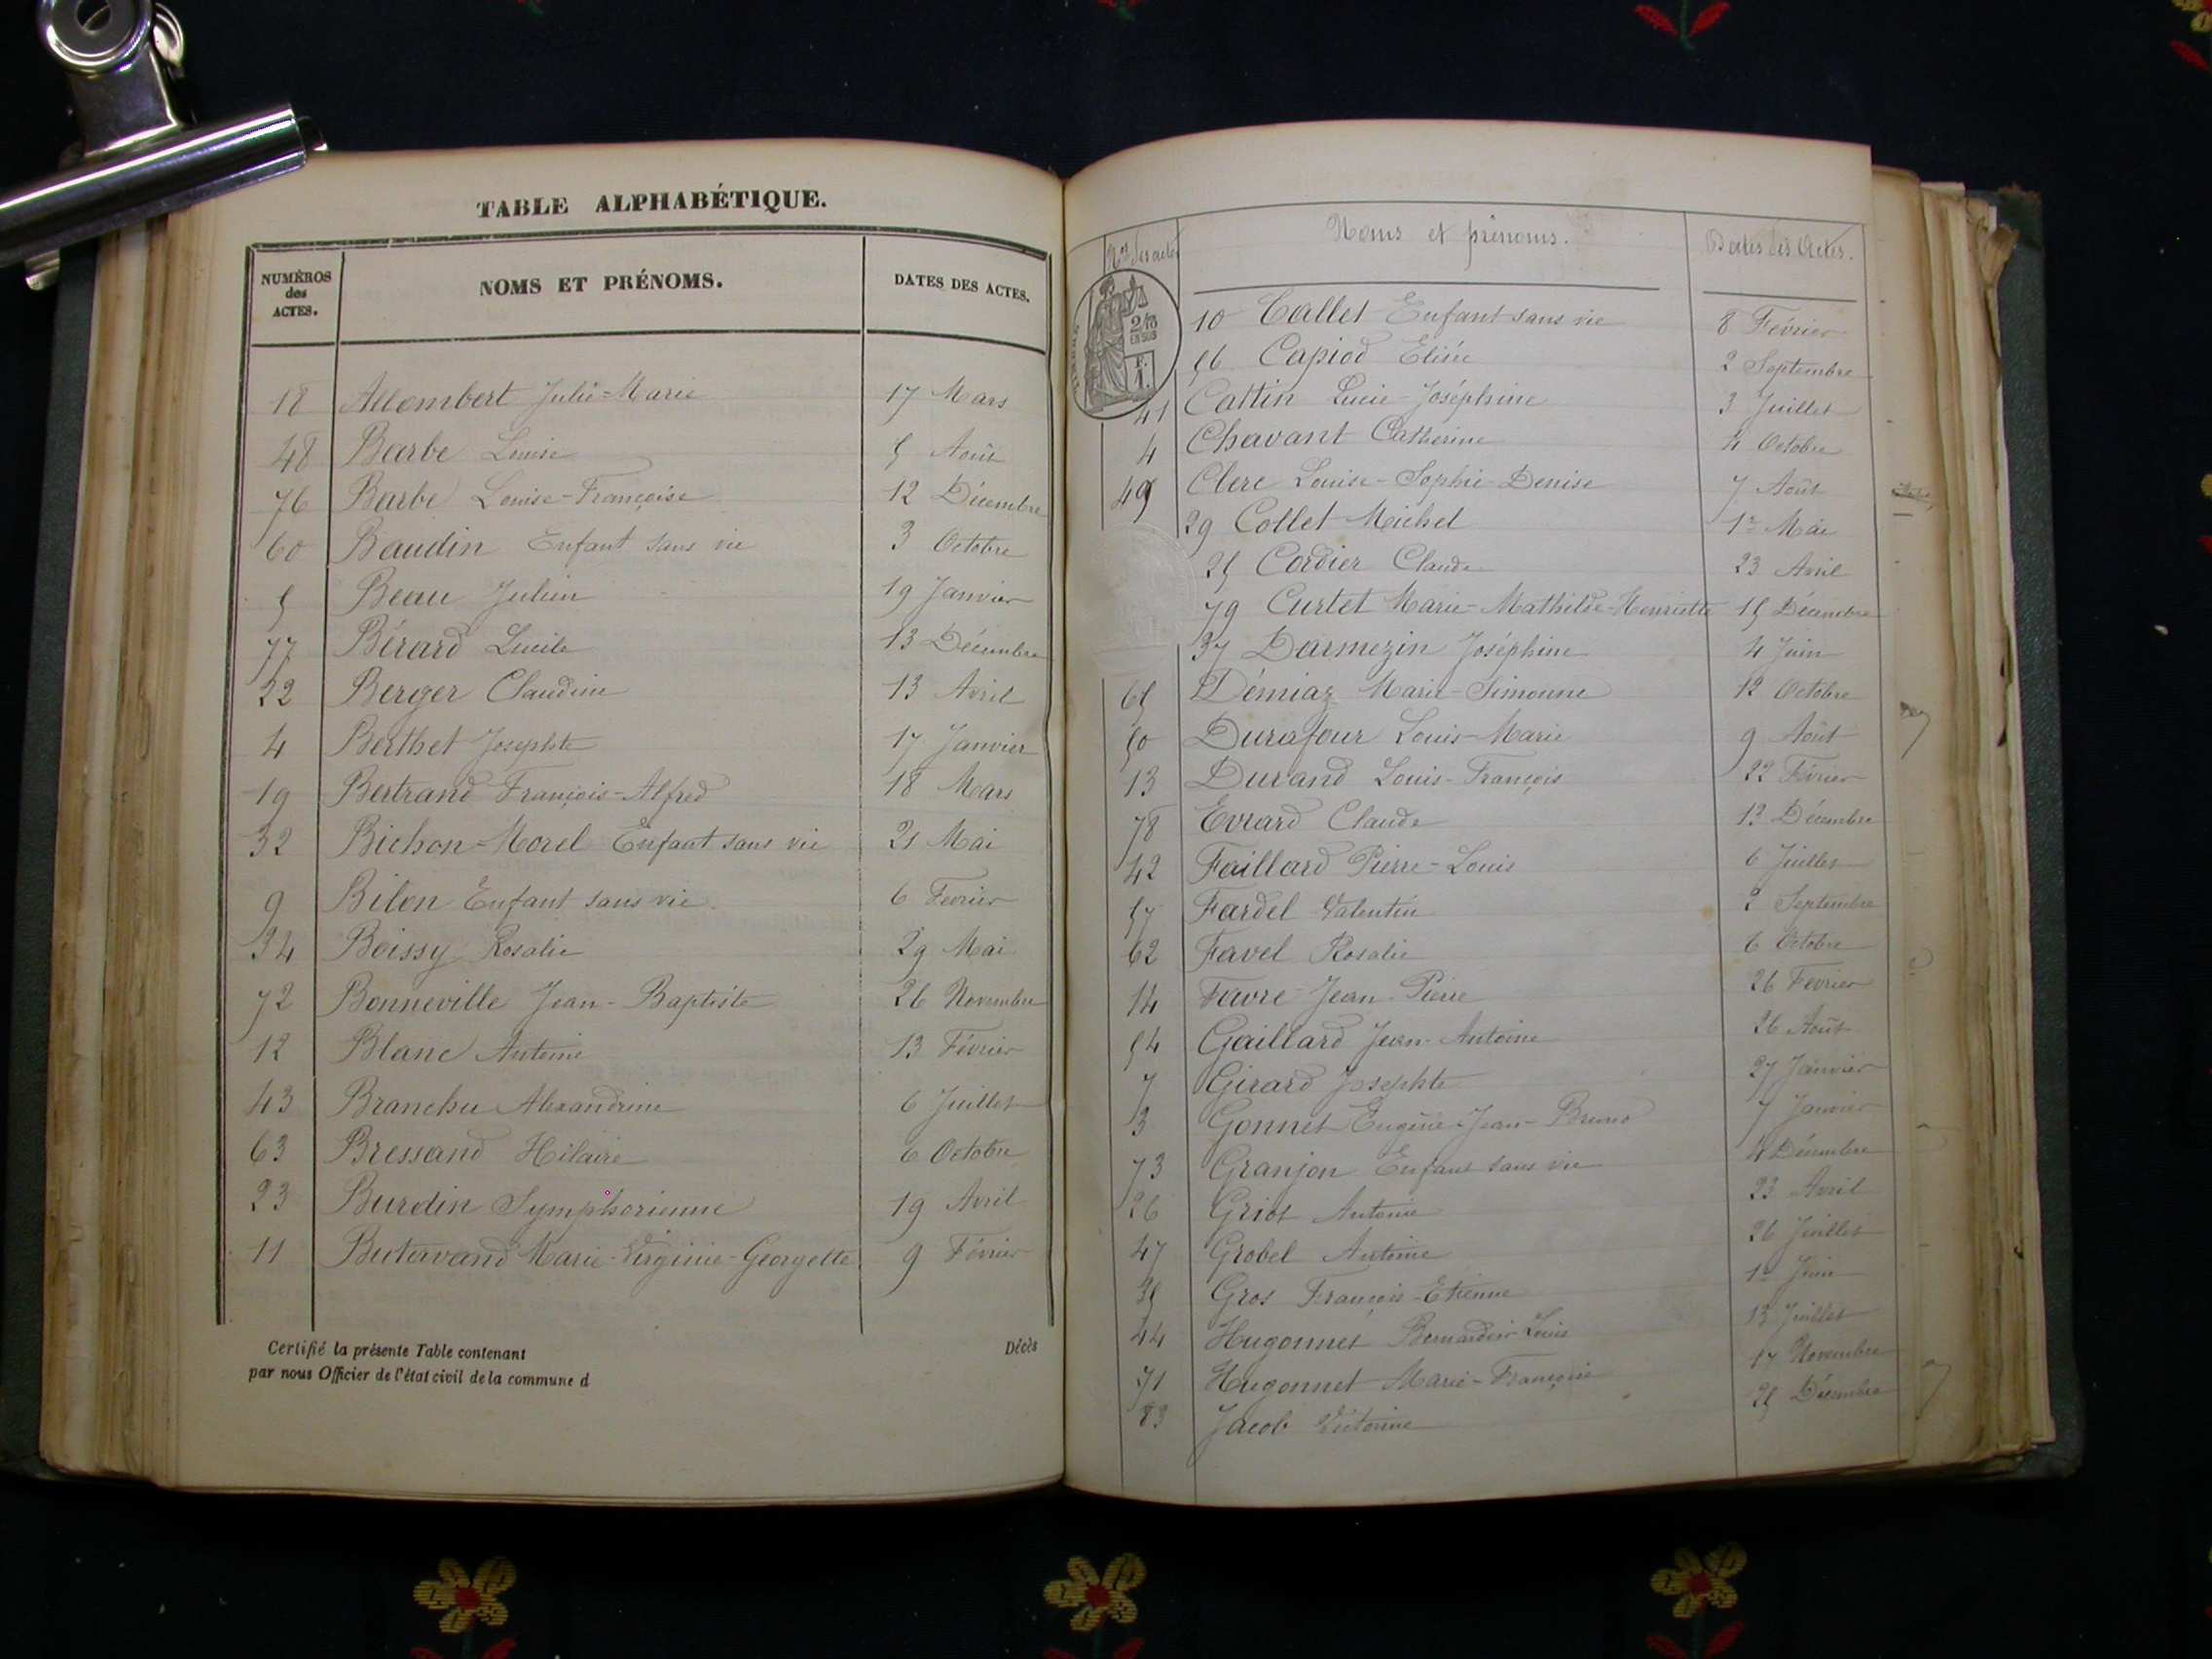 TABLE ALPHABÉTIQUE.
NUMÉROS des ACTES. NOMS ET PRÉNOMS. DATES DES ACTES.
18 Allombert Julie=Marie 17 Mars
48 Barbe Louise 5 Août
76 Barbe Louise-Françoise 12 Décembre
60 Baudin Enfant sans vie 3 Octobre
5 Beau Julien 19 Janvier
77 Bérard Lucile 13 Décembre
22 Berger Claudine 13 Avril
4 Berthet Josephte 17 Janvier
19 Bertrand François-Alfred 18 Mars
32 Bichon=Morel Enfant sans vie 21 Mai
9 Bilon Enfant sans vie. 6 Fevrier
34 Boissy Rosalie 29 Mai
72 Bonneville Jean-Baptiste 26 Novembre
12 Blanc Antoine 13 Février
43 Branchu Alexandrine 6 Juillet
63 Bressand Hilaire 6 Octobre
23 Burdin Symphorienne 19 Avril
11 Butavand Marie-Virginie-Georgette 9 Février
Certifié la présente Table contenant Décès
par nous Officier de l'état civil de la commune d
Nos des actes Noms et prénoms. Dates des Actes.
2/10 EN SUS
F.
1.
10 Callet Enfant sans vie 8 Février
56 Capiod Elisée 2 Septembre
41 Cattin Lucie-Joséphine 3 Juillet
4 Chavant Catherine 4 Octobre
49 Clerc Louise-Sophie-Denise 7 Août
29 Collet Michel 1er Mai
25 Cordier Claude 23 Avril
79 Curtet Marie-Mathilde-Henriette 15 Décembre
37 Darmezin Joséphine 4 Juin
65 Démiaz Marie-Simonne 12 Octobre
50 Durafour Louis-Marie 9 Août
13 Durand Louis-François 22 Février
78 Evrard Claude 13 Décembre
42 Faillard Pierre-Louis 6 Juillet
57 Fardel Valentin 2 Septembre
62 Favel Rosalie 6 Octobre
14 Favre Jean-Pierre 26 Fevrier
54 Gaillard Jean-Antoine 26 Août
7 Girard Josephte 27 Janvier
3 Gonnet Eugène-Jean-Bruno 7 Janvier
73 Granjon Enfant sans vie 4 Décembre
26 Griot Antoine 23 Avril
47 Grobel Antoine 26 Juillet
35 Gros François-Etienne 1er Juin
44 Hugonnet Bernardin Louis 13 Juillet
71 Hugonnet Marie-Françoise 17 Novembre
83 Jacob Victorine 28 Décembre